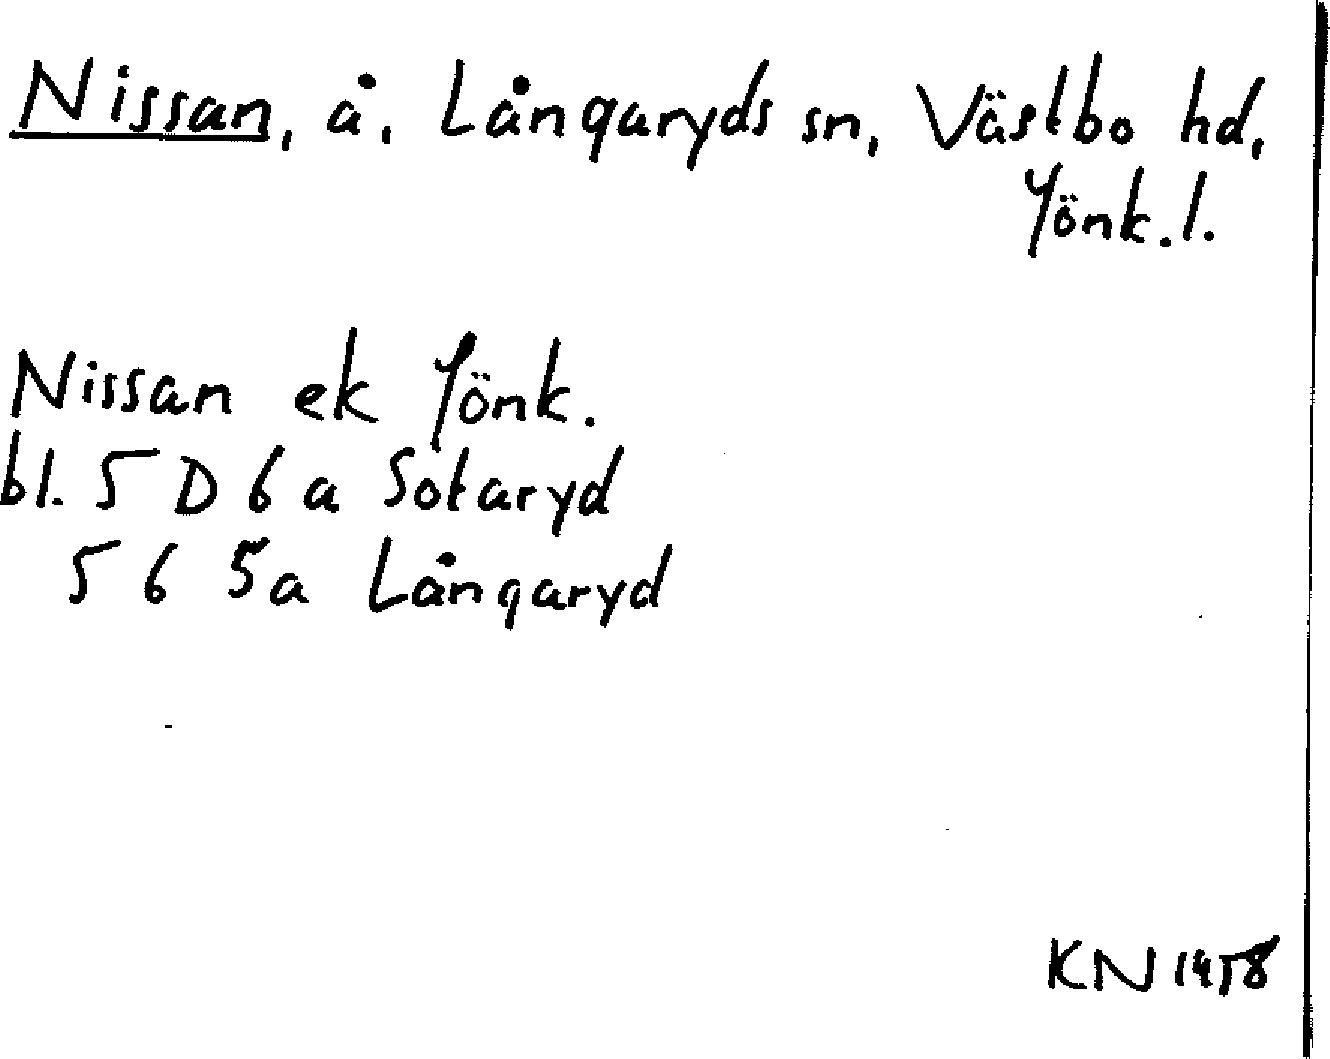 Nissan, å, Långaryds sn, Västbo hd,
Jönk.l.
Nissan ek Jönk.
bl. 5 D 6 a Sotaryd
5 6 5a Långaryd
KN 1958